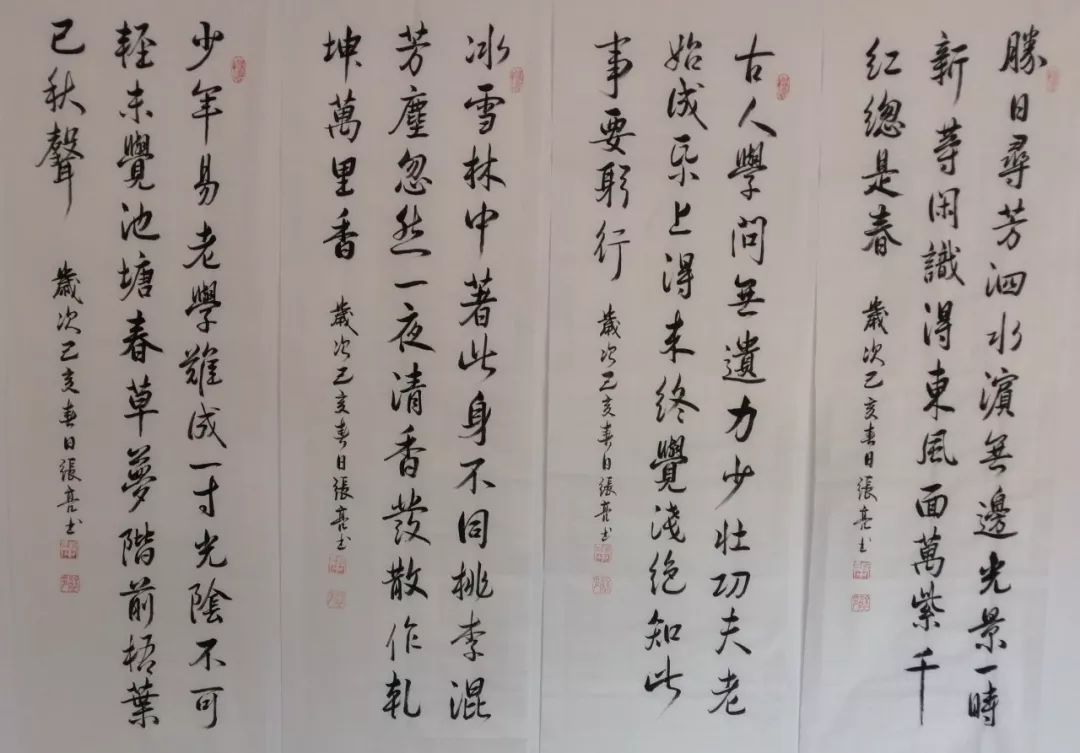 勝日尋芳泗水濱無邊光景一時
新等閑識得東風面萬紫千
红總是春
歲次己亥春日張亮书
古人學問無遺力少壯功夫老
始成帋上得来終覺淺絶知此
事要躬行
歲次己亥春日張亮书
冰雪林中著此身不同桃李混
芳塵忽然一夜清香發散作乾
坤萬里香
歲次己亥春日張亮书
少年易老學難成一寸光陰不可
輕未覺池塘春草夢階前梧葉
已秋聲
歲次己亥春日張亮书